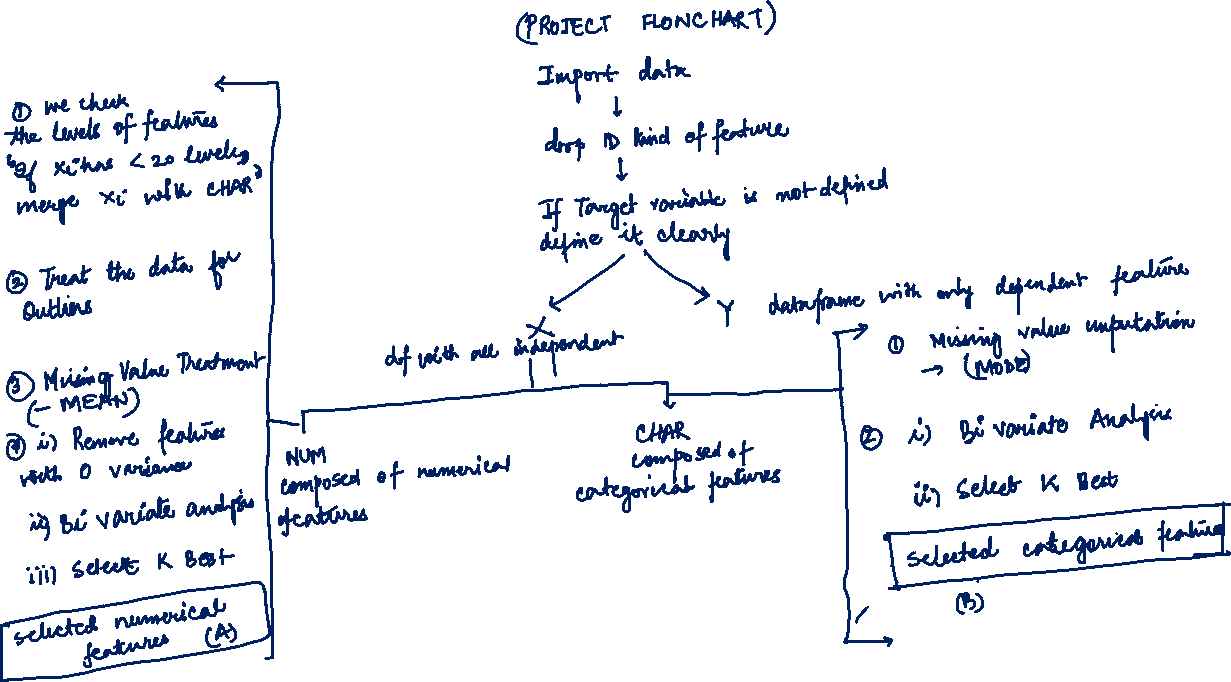 (PROJECT FLOWCHART)
Import data
↓
drop ID kind of feature
↓
If Target variable is not defined
define it clearly
X
df with all independent
Y dataframe with only dependent feature
NUM
composed of numerical
features
CHAR
composed of
categorical features
① we check
the levels of features
"if xi has < 20 levels,
merge xi with CHAR"
② Treat the data for
Outliers
③ Missing Value Treatment
(– MEAN)
④ i) Remove features
with 0 variance
ii) Bi variate analysis
iii) Select K Best
selected numerical
features (A)
① Missing value imputation
→ (MODE)
② i) Bi variate Analysis
ii) Select K Best
selected categorical feature
(B)